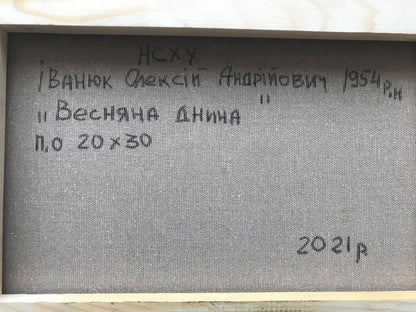 НСХУ
Іванюк Олексій Андрійович 1954 р.н
"Весняна днина"
п,о 20х30
2021р.